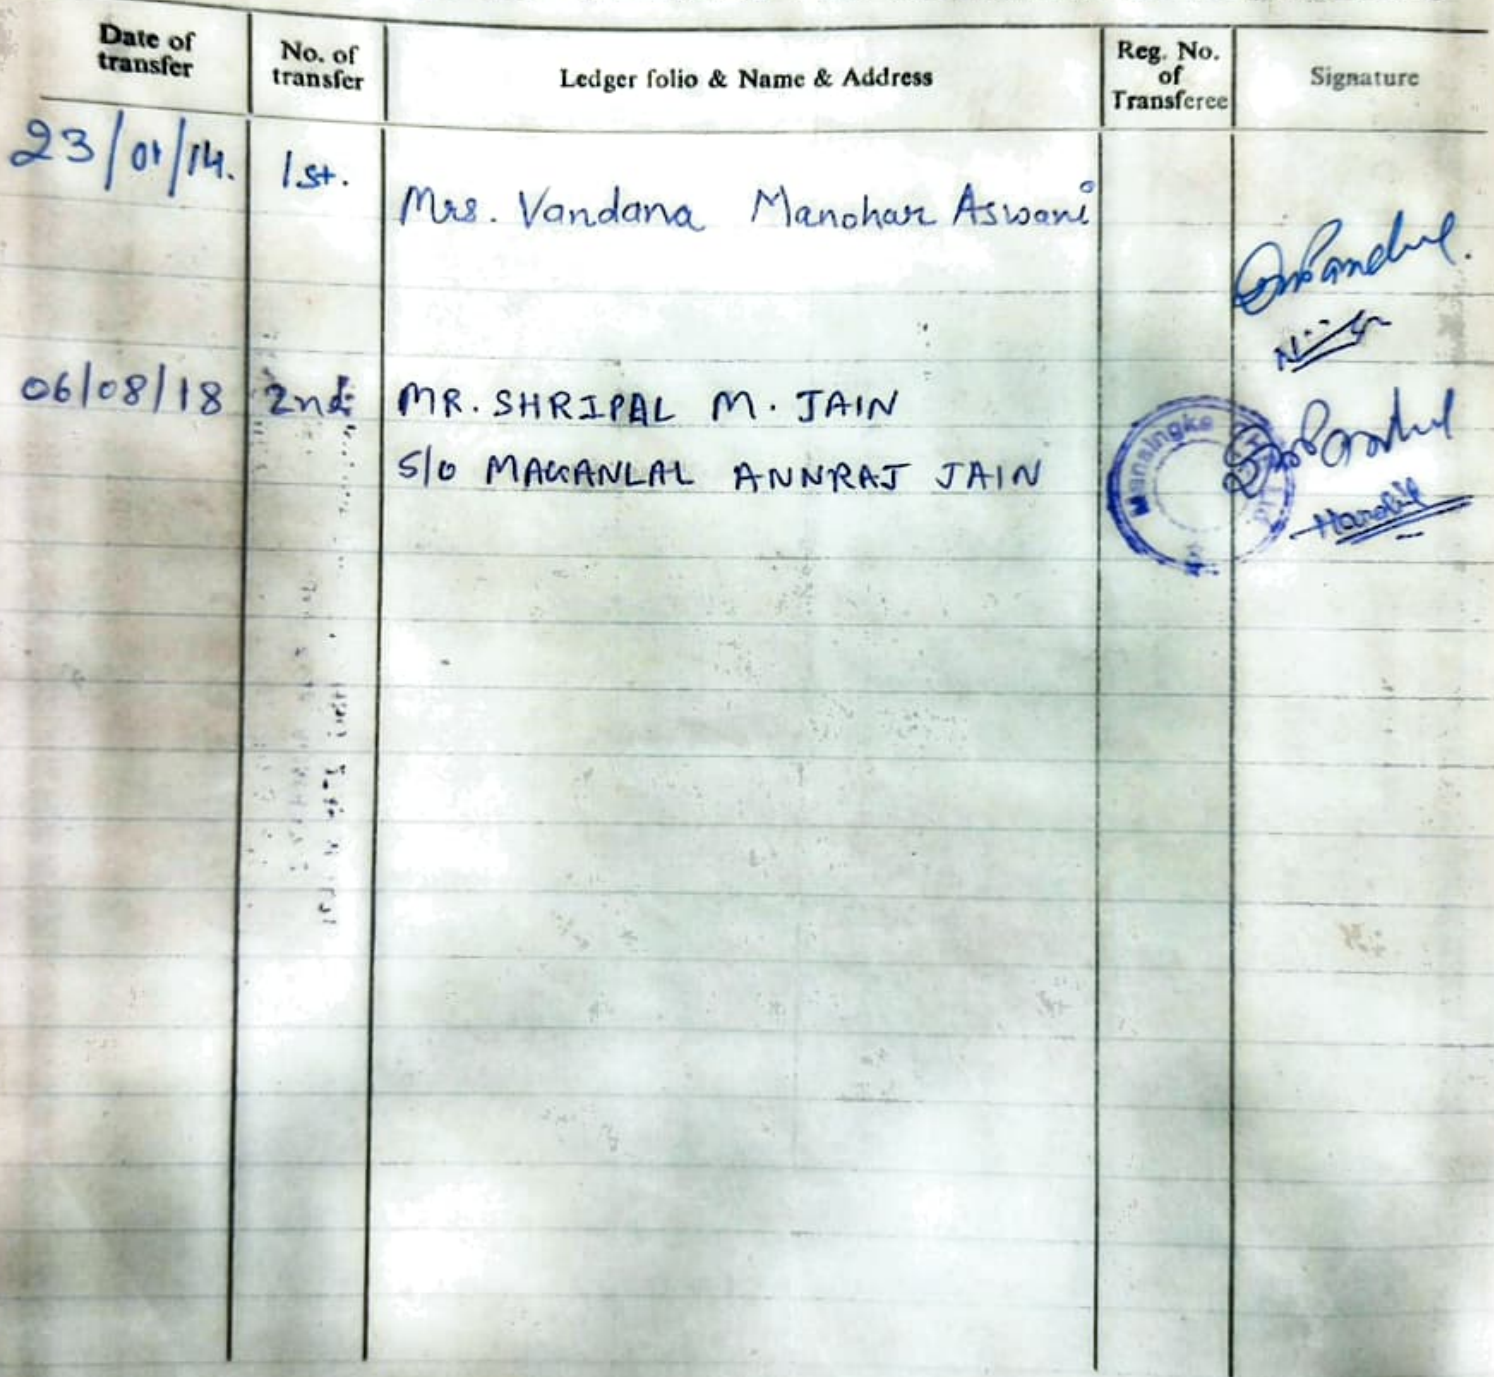 Date of transfer No. of transfer Ledger folio & Name & Address Reg. No. of Transferee Signature
23/01/14. 1st. Mrs. Vandana Manohar Aswani
06/08/18 2nd MR. SHRIPAL M. JAIN
S/O MAGANLAL ANNRAJ JAIN
Mansingka